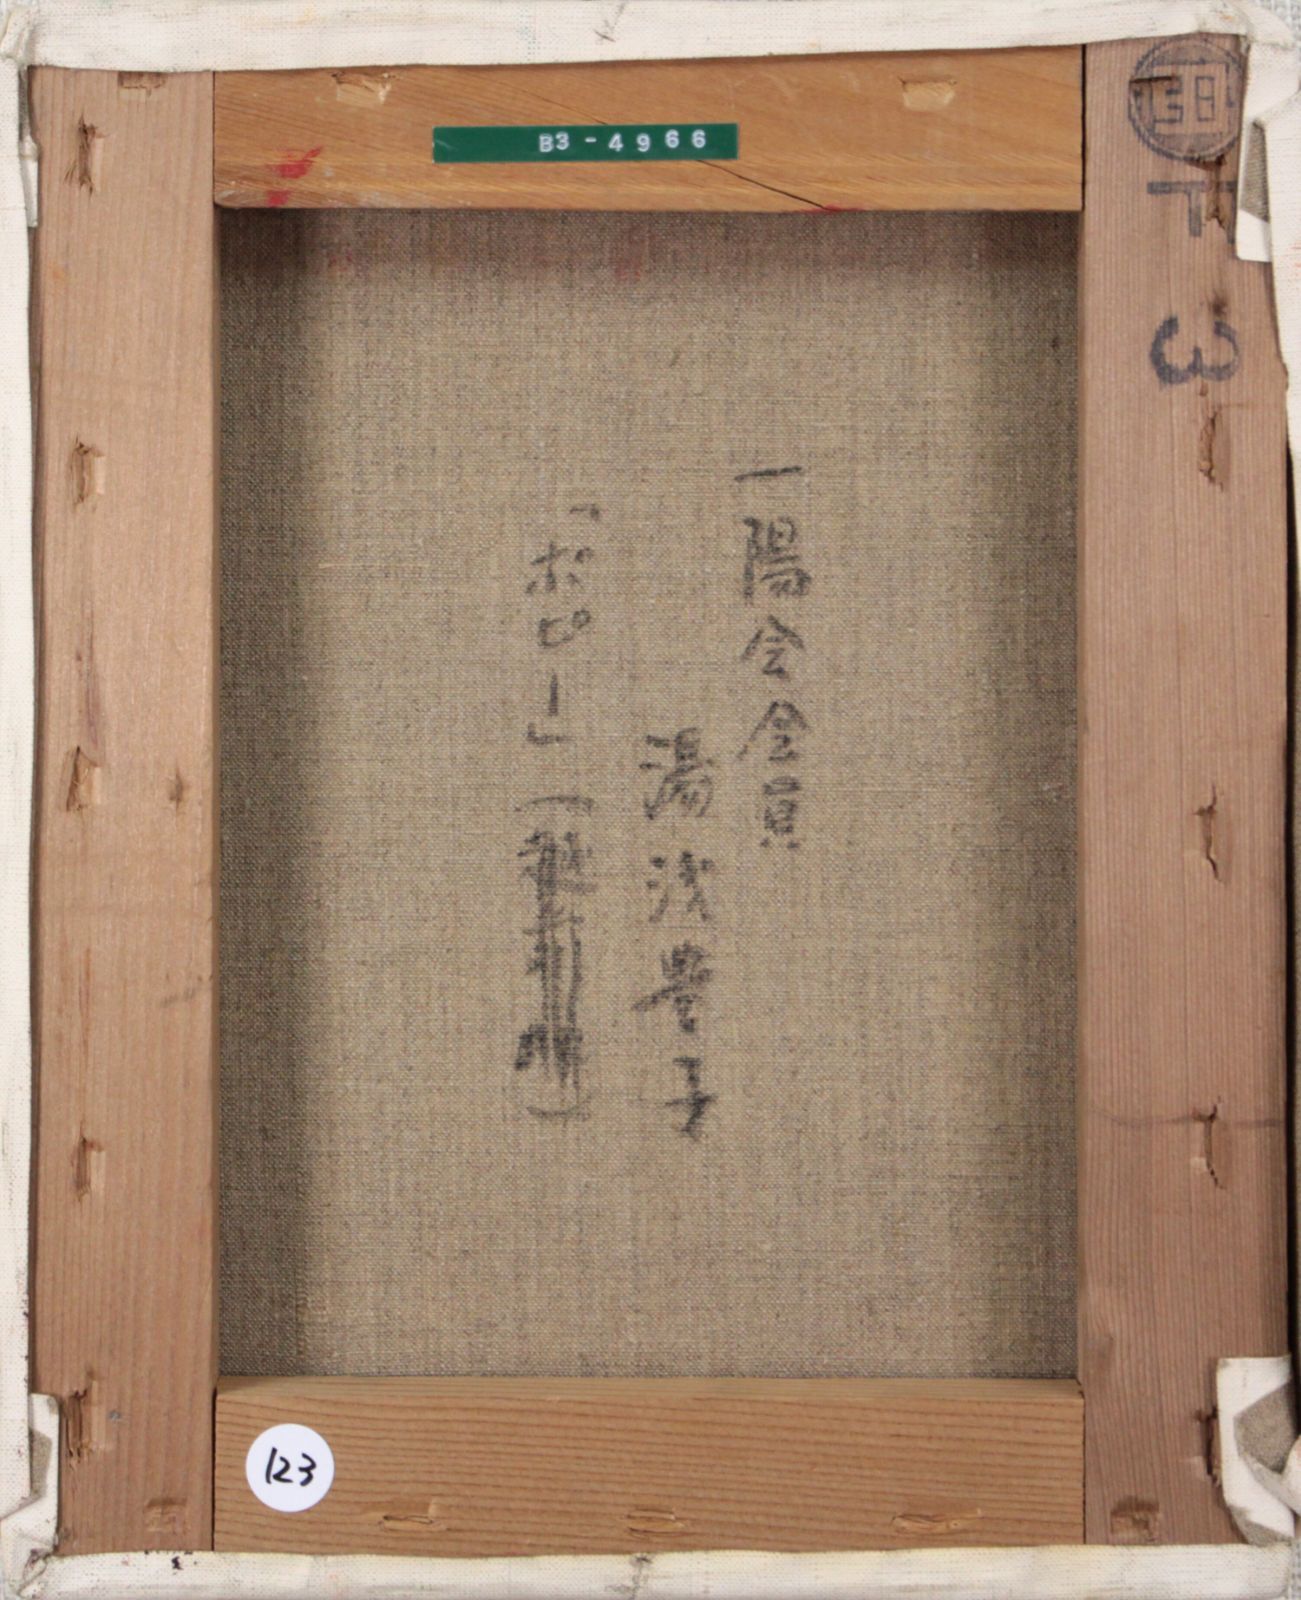 B3-4966
F
3
一陽会会員
湯浅豊子
「ポピー」(
)
123